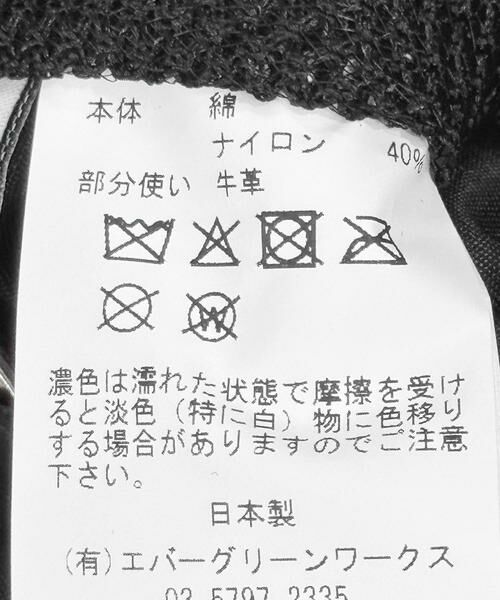 本体 綿
ナイロン 40%
部分使い 牛革
W
濃色は濡れた状態で摩擦を受け
ると淡色（特に白）物に色移り
する場合がありますのでご注意
下さい。
日本製
(有)エバーグリーンワークス
03 5797 2335